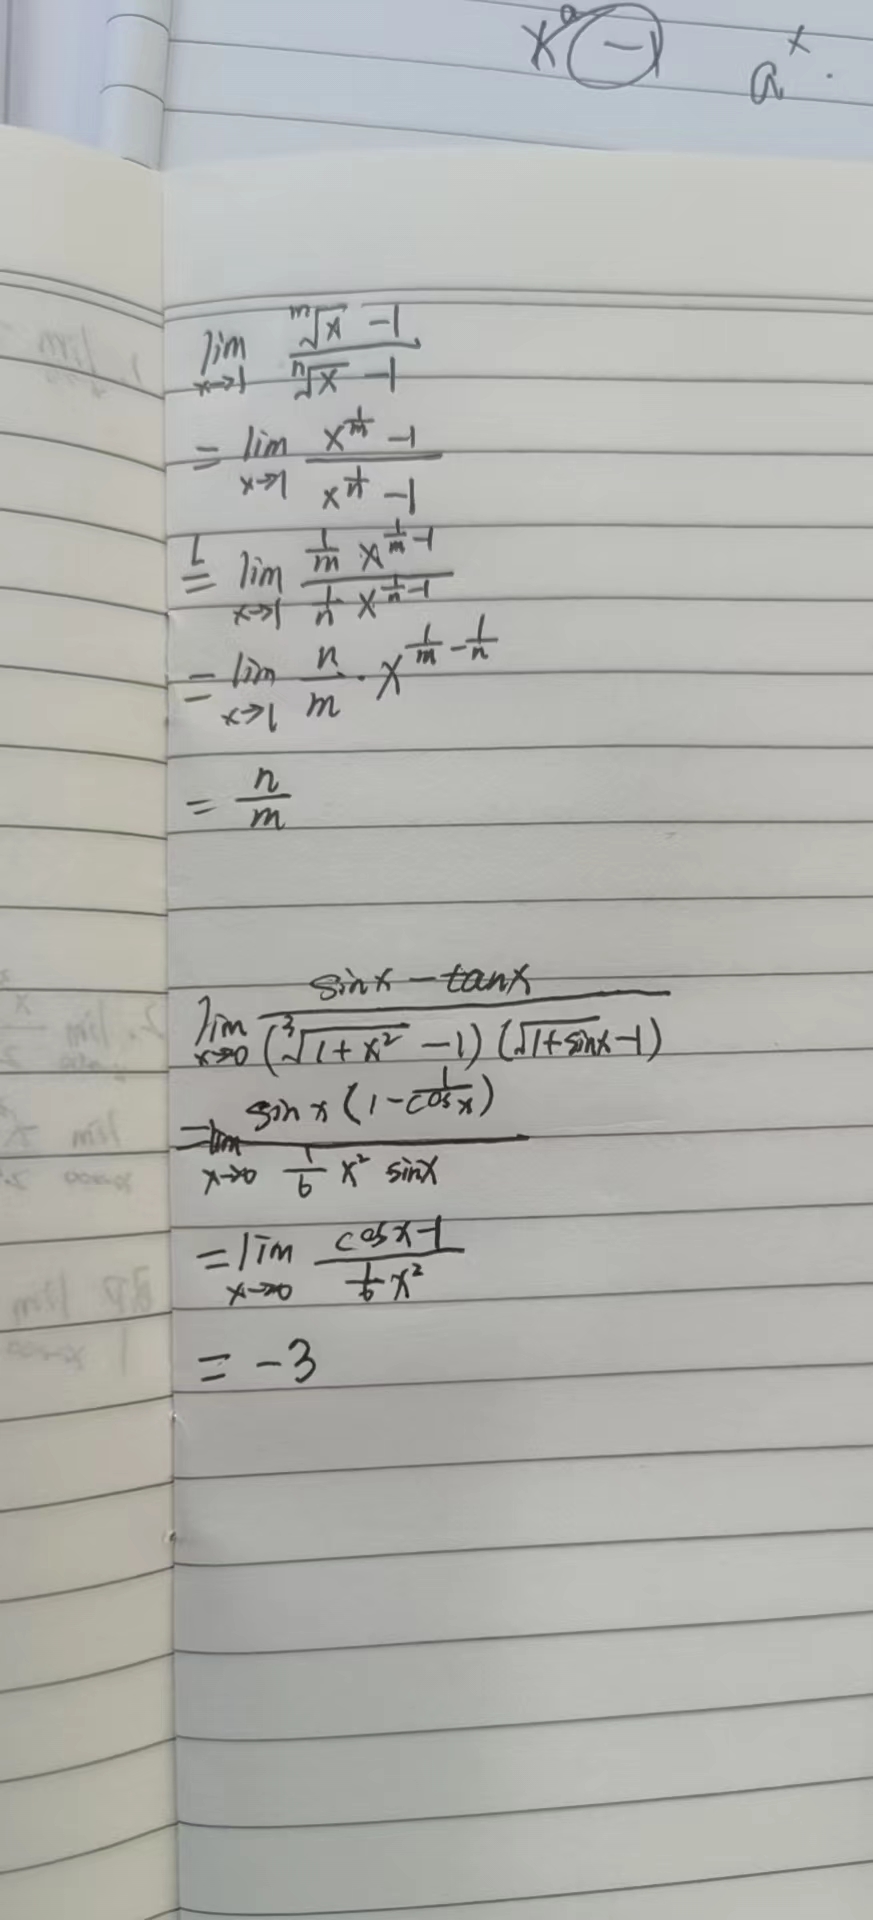 x^a - 1    a^x .
lim_{x→1} \frac{\sqrt[m]{x} - 1}{\sqrt[n]{x} - 1}
= lim_{x→1} \frac{x^{\frac{1}{m}} - 1}{x^{\frac{1}{n}} - 1}
\overset{L}{=} lim_{x→1} \frac{\frac{1}{m} x^{\frac{1}{m} - 1}}{\frac{1}{n} x^{\frac{1}{n} - 1}}
= lim_{x→1} \frac{n}{m} · x^{\frac{1}{m} - \frac{1}{n}}
= \frac{n}{m}
lim_{x→0} \frac{sinx - tanx}{(\sqrt[3]{1+x^2} - 1)(\sqrt{1+sinx} - 1)}
= lim_{x→0} \frac{sinx (1 - \frac{1}{cosx})}{\frac{1}{6} x^2 sinx}
= lim_{x→0} \frac{cosx - 1}{\frac{1}{6} x^2}
= -3